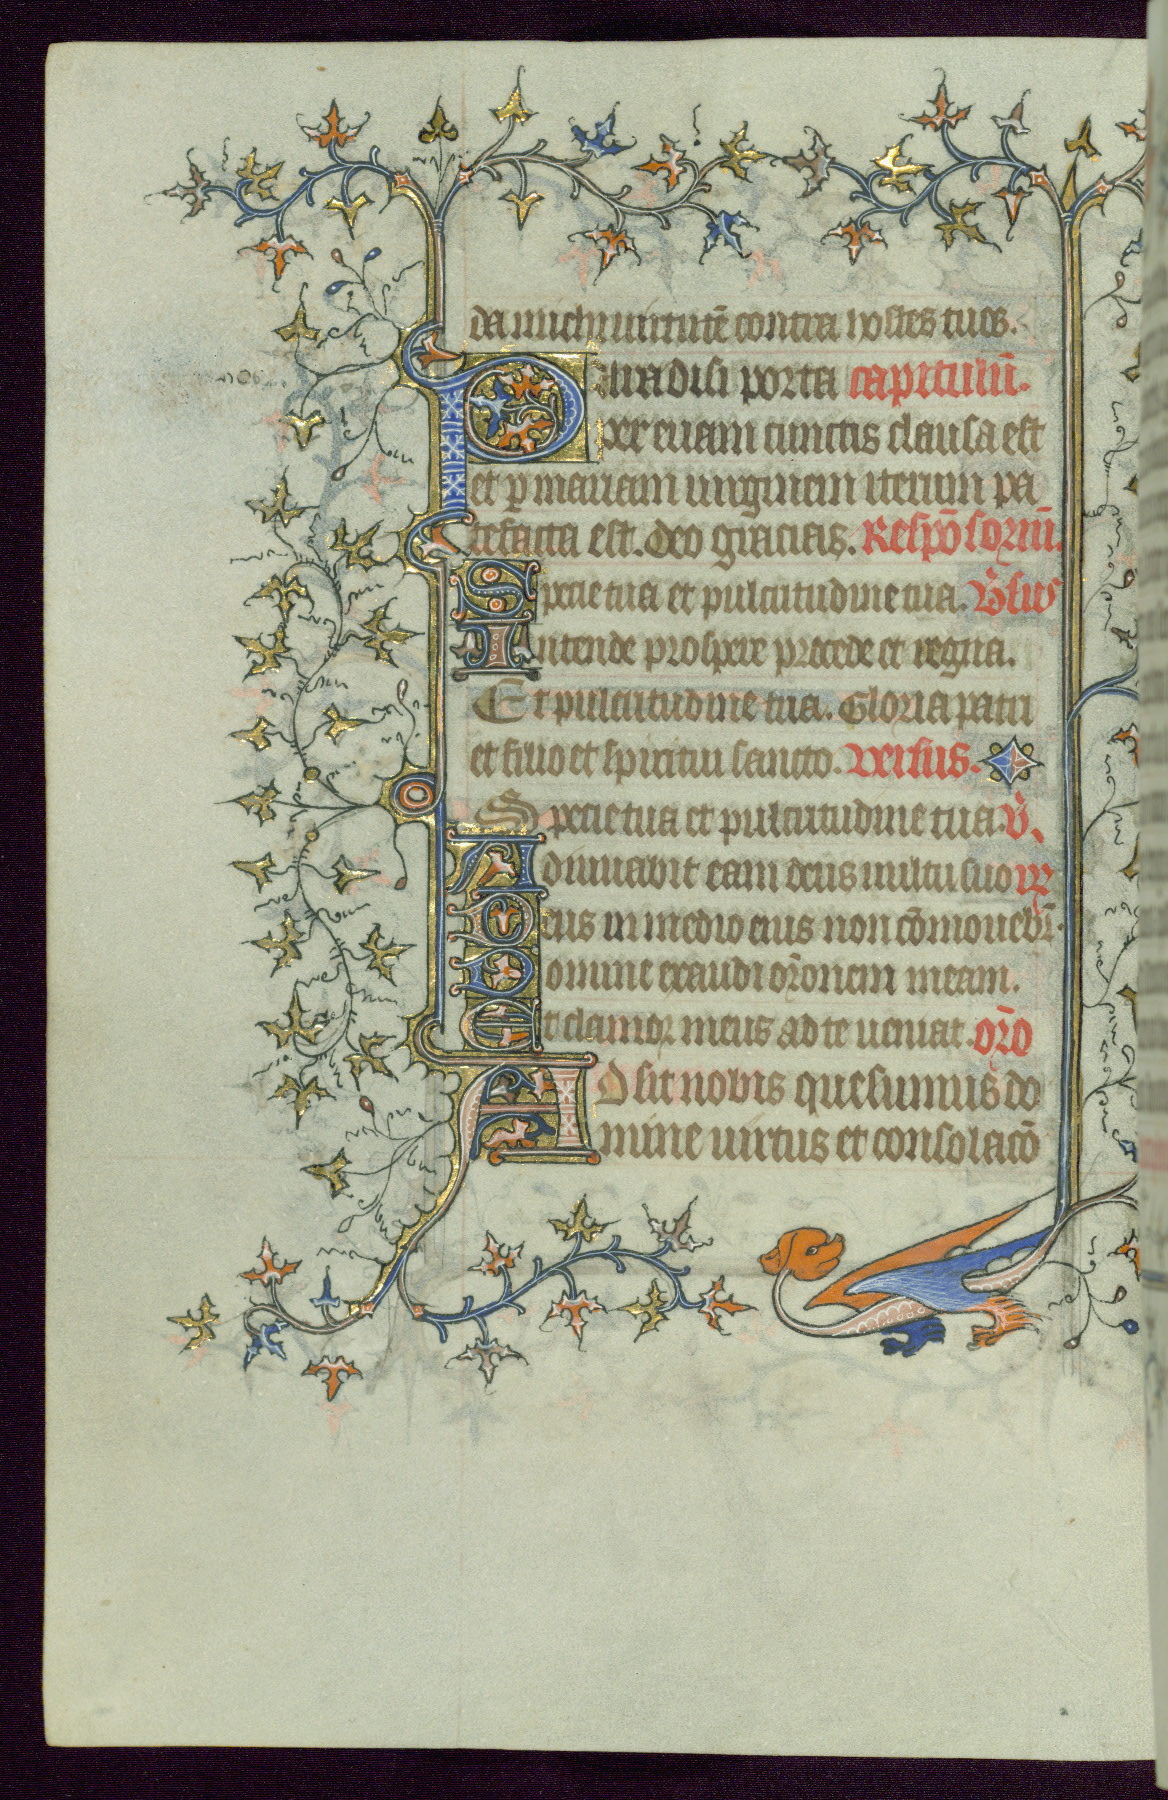 da michi uirtutē contra hostes tuos.
Paradisi porta capitulū.
per euam cunctis clausa est
et p mariam uirginem iterum pa
tefacta est. deo gracias. Respōsoriū.
Specie tua et pulcritudine tua. V̄sus
Intende prospere procede et regna.
Et pulcritudine tua. Gloria patri
et filio et spiritui sancto. versus.
Specie tua et pulcritudine tua. V̄.
Adiuuabit eam deus uultu suo
Deus in medio eius non cōmouebr̄.
Domine exaudi or̄onem meam.
Et clamor meus ad te ueniat. or̄o
Adsit nobis quesumus do
mine uirtus et consolacō